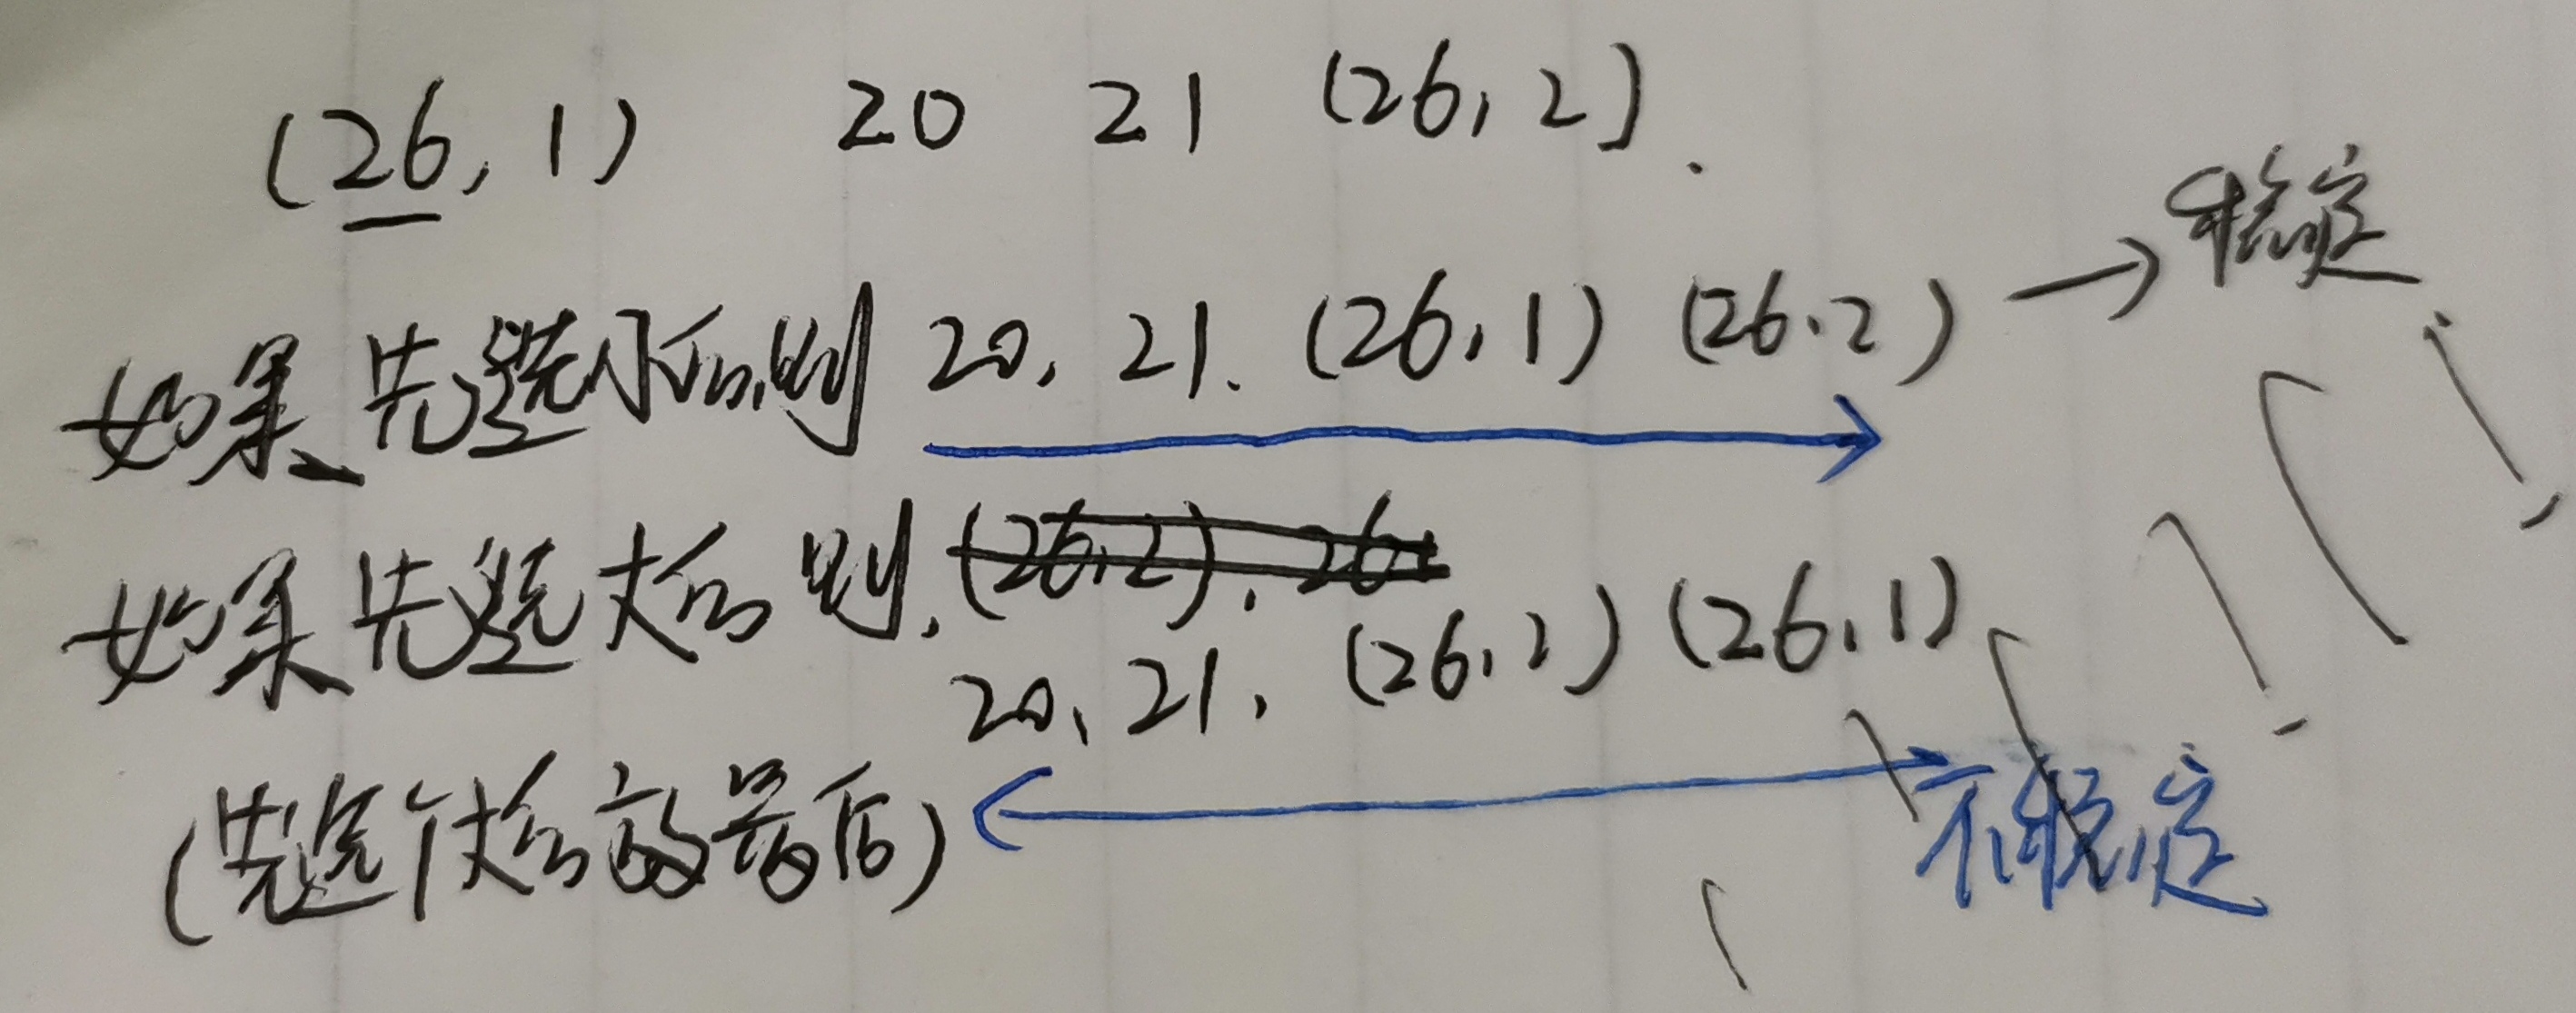 (26, 1) 20 21 (26, 2).
如果先选小的,则 20, 21. (26, 1) (26.2) → 稳定
如果先选大的则. (26,2), 26
20, 21, (26, 2) (26, 1)
(先选个大的放最后) 不稳定